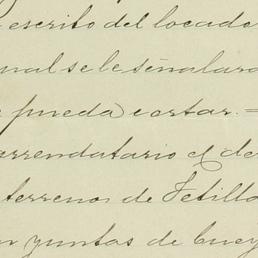 escrito del locado
ual se le señalara
pueda cortar. =
arrendatario el de
terrenos de Tetilla
n yuntas de buey